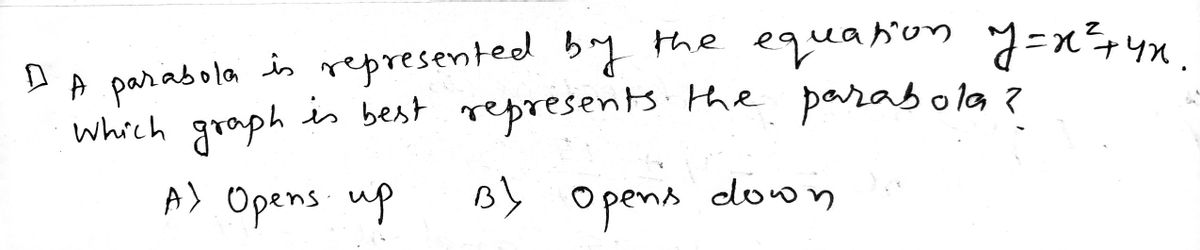 1) A parabola is represented by the equation y=x²+4x.
Which graph is best represents the parabola?
A) Opens up B) Opens down